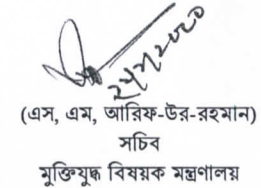 (এস, এম, আরিফ-উর-রহমান)
সচিব
মুক্তিযুদ্ধ বিষয়ক মন্ত্রণালয়